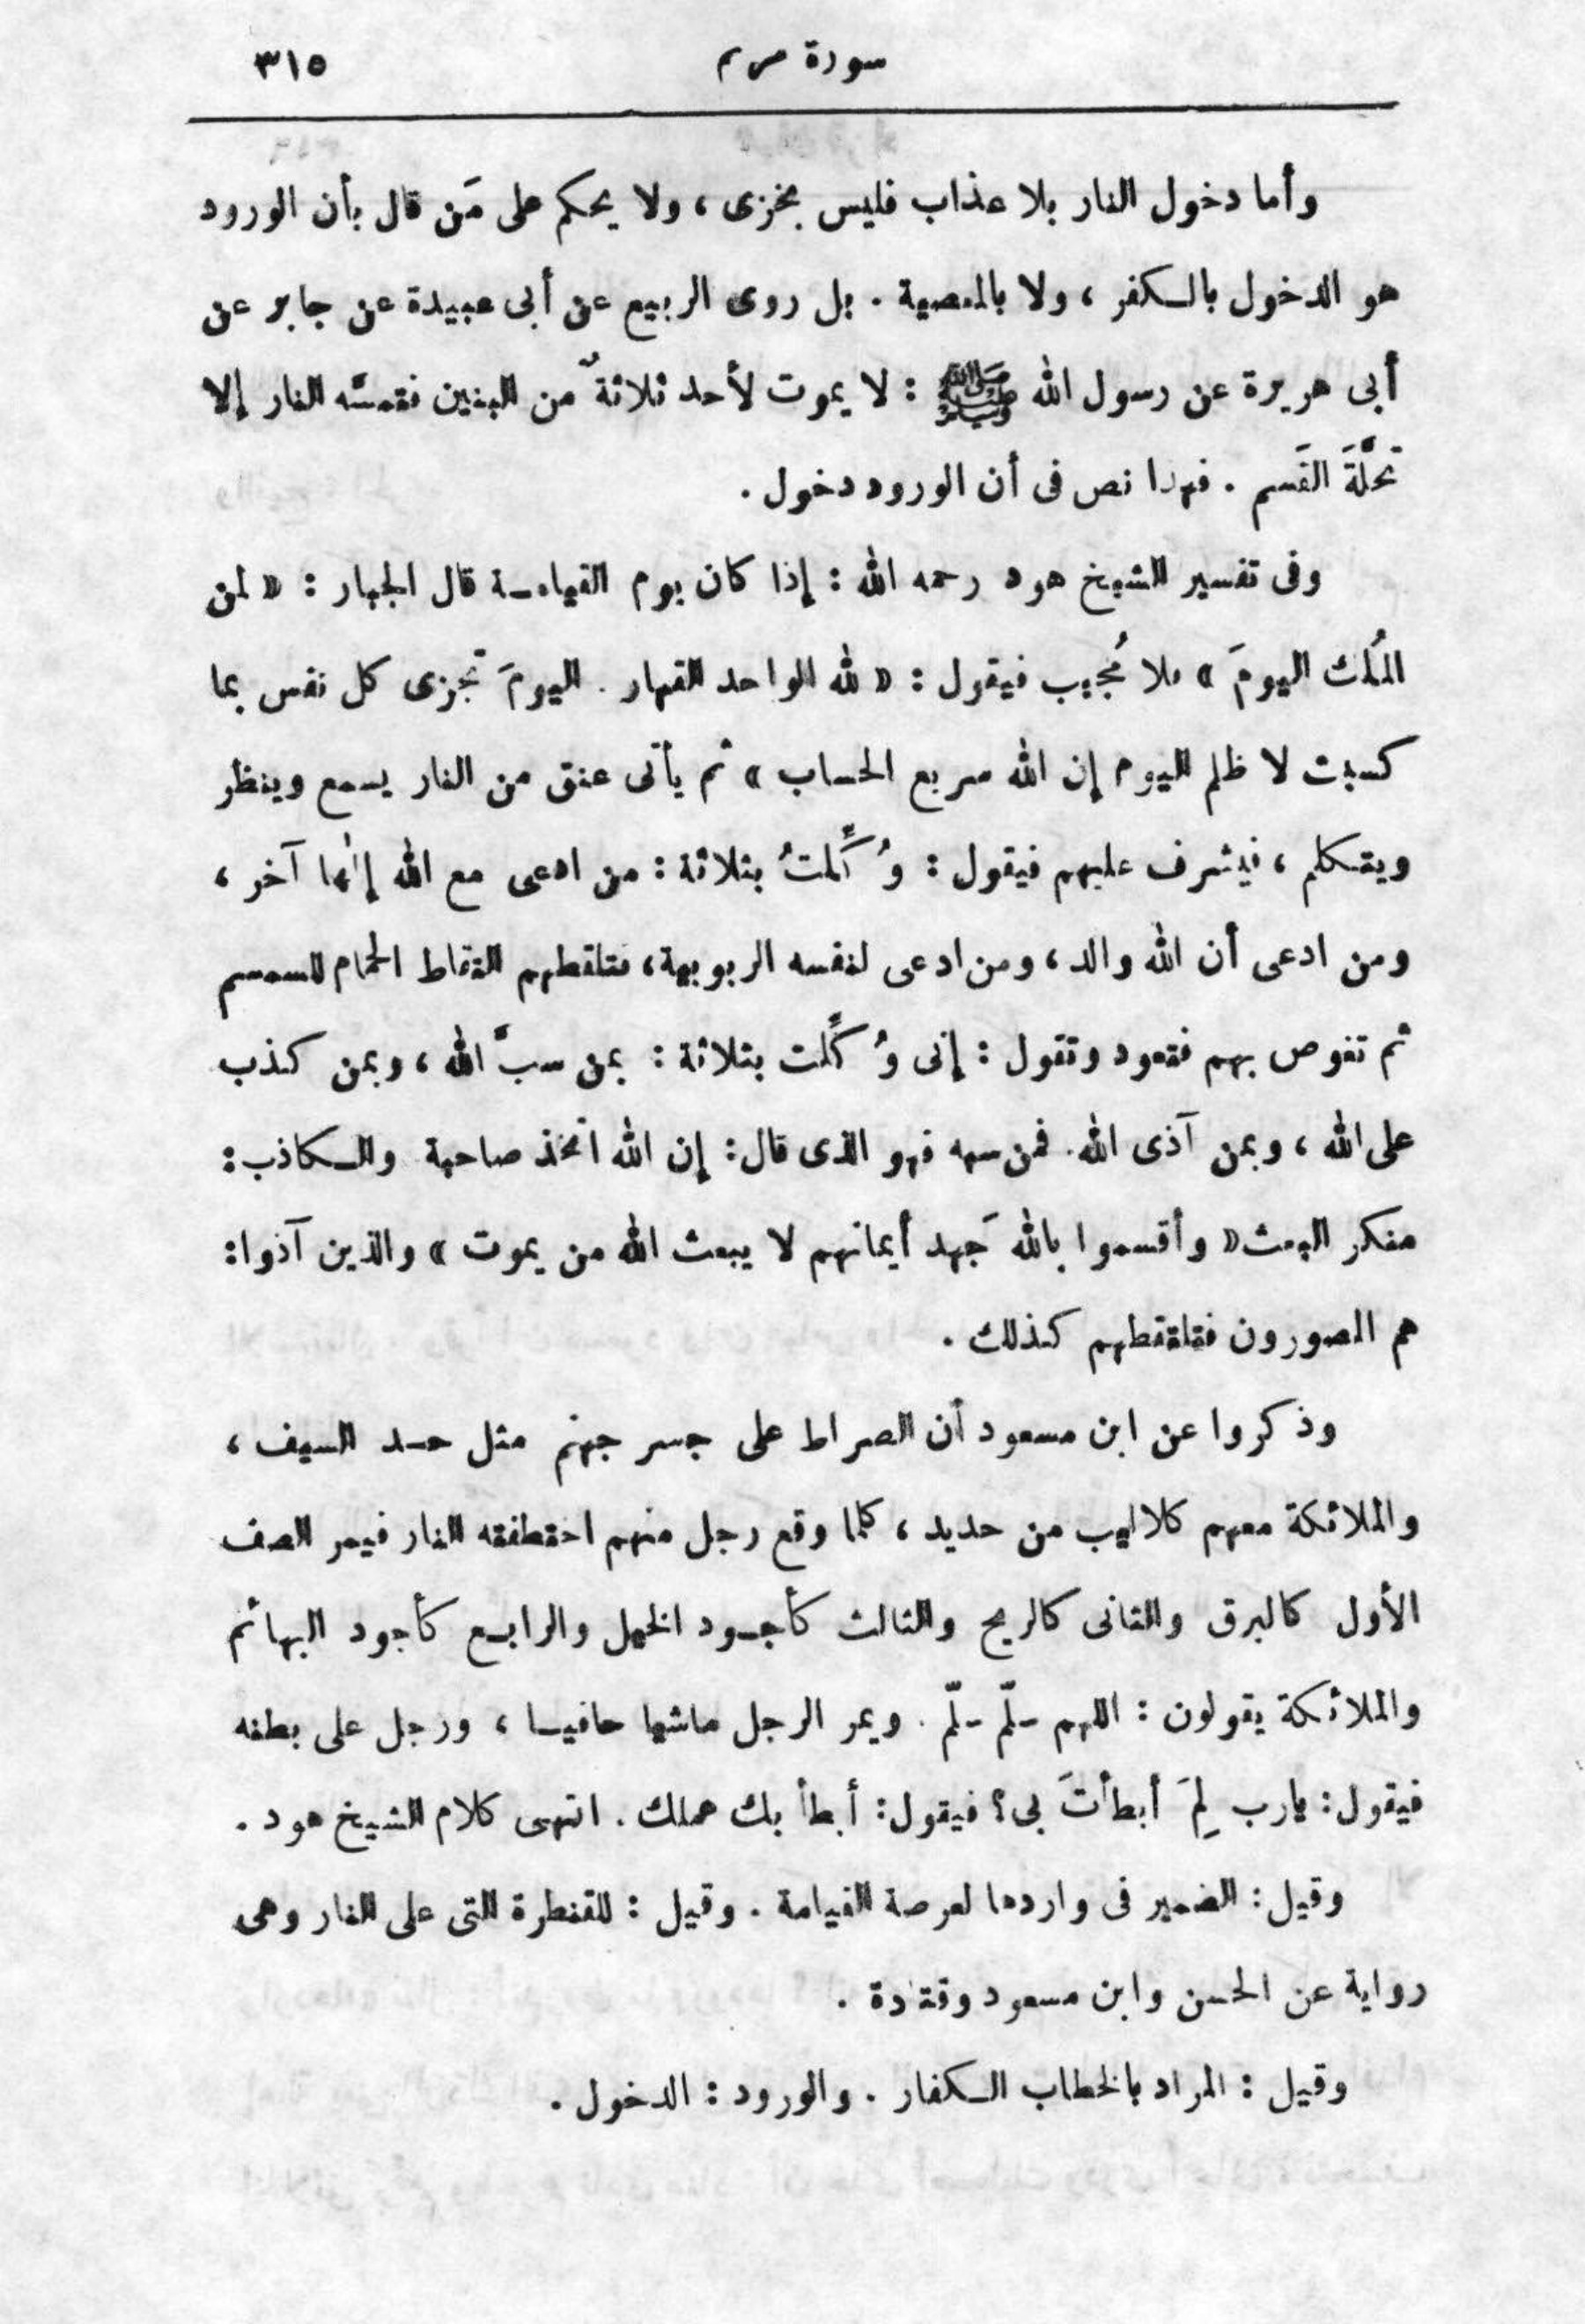 سورة مريم ٣١٥
وأما دخول النار بلا عذاب فليس بخزى ، ولا يحكم على مَن قال بأن الورود
هو الدخول بالكفر ، ولا بالمعصية . بل روى الربيع عن أبى عبيدة عن جابر عن
أبى هريرة عن رسول الله ﷺ : لا يموت لأحد ثلاثةٌ من البنين فتمسَّه النار إلا
تَحلَّةَ القَسم . فهذا نص فى أن الورود دخول .
وفى تفسير الشيخ هود رحمه الله : إذا كان يوم القيامة قال الجبار : « لمن
المُلك اليومَ » فلا مُجيب فيقول : « لله الواحد القهار . اليومَ تُجزى كل نفس بما
كسبت لا ظلم اليوم إن الله سريع الحساب » ثم يأتى عنق من النار يسمع وينظر
ويتكلم ، فيشرف عليهم فيقول : وُكِّلتُ بثلاثة : من ادعى مع الله إلٰها آخر ،
ومن ادعى أن الله والد ، ومن ادعى لنفسه الربوبية، فتلقطهم التقاط الحمام للسمسم
ثم تغوص بهم فتعود وتقول : إنى وُكِّلت بثلاثة : بمن سبَّ الله ، وبمن كذب
على الله ، وبمن آذى الله. فمن سبه فهو الذى قال: إن الله اتخذ صاحبة والكاذب:
منكر البعث « وأقسموا بالله جَهد أيمانهم لا يبعث الله من يموت » والذين آذوا:
هم المصورون فتلتقطهم كذلك .
وذكروا عن ابن مسعود أن الصراط على جسر جهنم مثل حد السيف ،
والملائكة معهم كلاليب من حديد ، كلما وقع رجل منهم اختطفته النار فيمر الصف
الأول كالبرق والثانى كالريح والثالث كأجود الخيل والرابع كأجود البهائم
والملائكة يقولون : اللهم سلّم سلّم . ويمر الرجل ماشيا حافيا ، ورجل على بطنه
فيقول: يارب لِمَ أبطأتَ بى؟ فيقول: أبطأ بك عملك . انتهى كلام الشيخ هود .
وقيل : الضمير فى واردها لعرصة القيامة . وقيل : للقنطرة التى على النار وهى
رواية عن الحسن وابن مسعود وقتادة .
وقيل : المراد بالخطاب الكفار . والورود : الدخول .